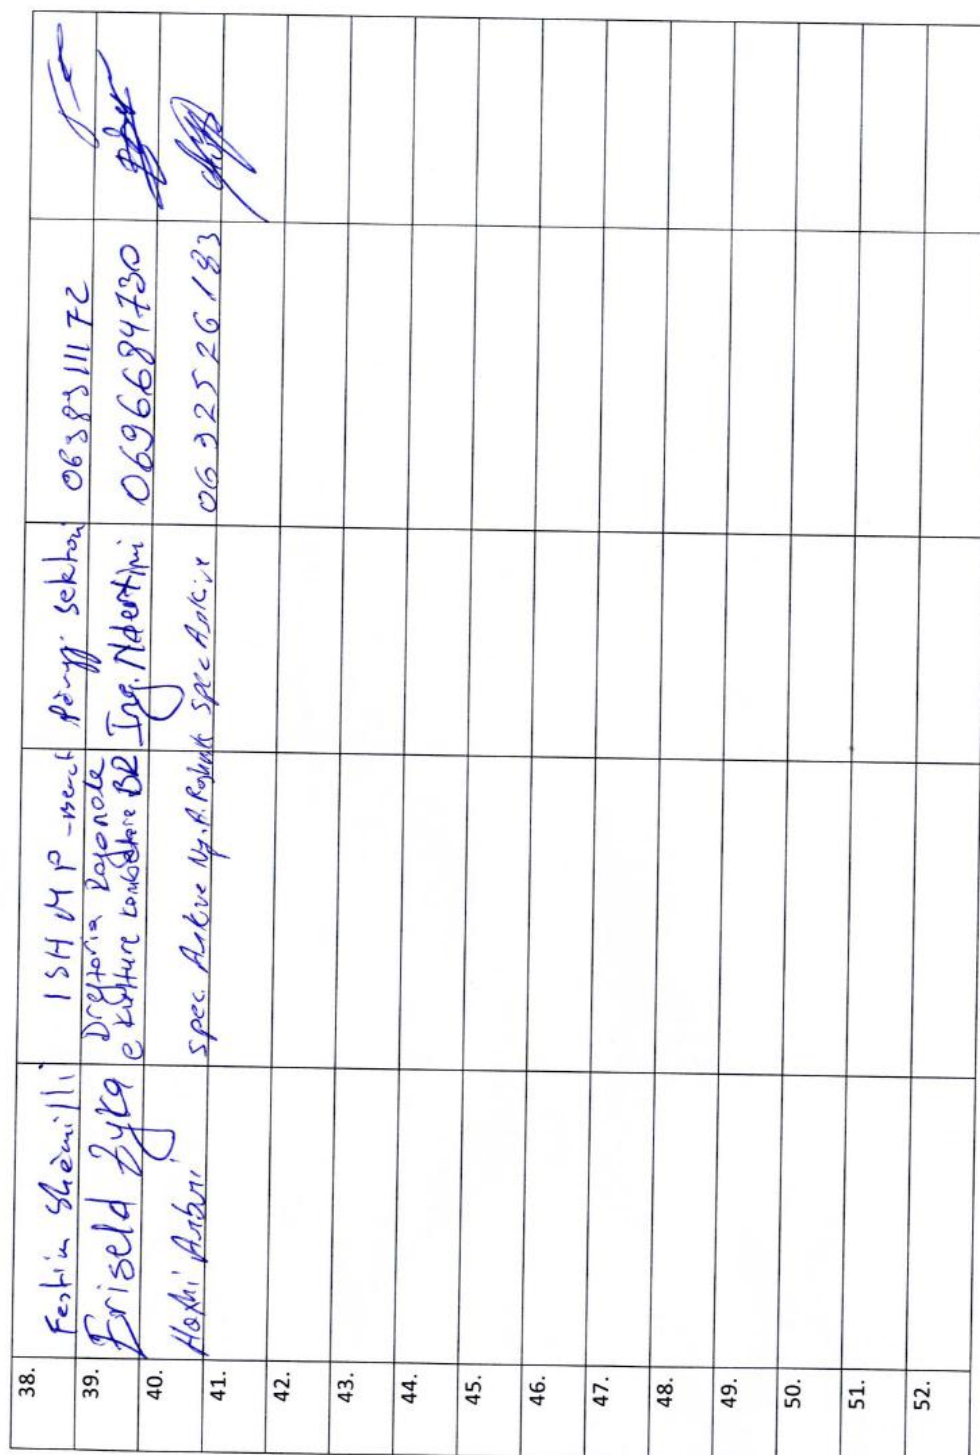 38. Festim Shëmilli ISHMP - Berat Përgj. Sektori 0698311172
39. Eriseld Zyka Drejtoria Rajonale e Kulturës Kombëtare BR Ing. Ndërtimi 0696684730
40. Hoxhi Arbri spec. Arkive Ny. A. spec Arkive 0692526183
41.
42.
43.
44.
45.
46.
47.
48.
49.
50.
51.
52.